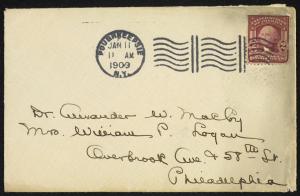 POUGHKEEPSIE
JAN 11
11 AM
1909
N.Y.
2
Dr. Alexander W. MacCoy
Mrs. William P. Logan
Overbrook Ave & 58th St.
Philadelphia